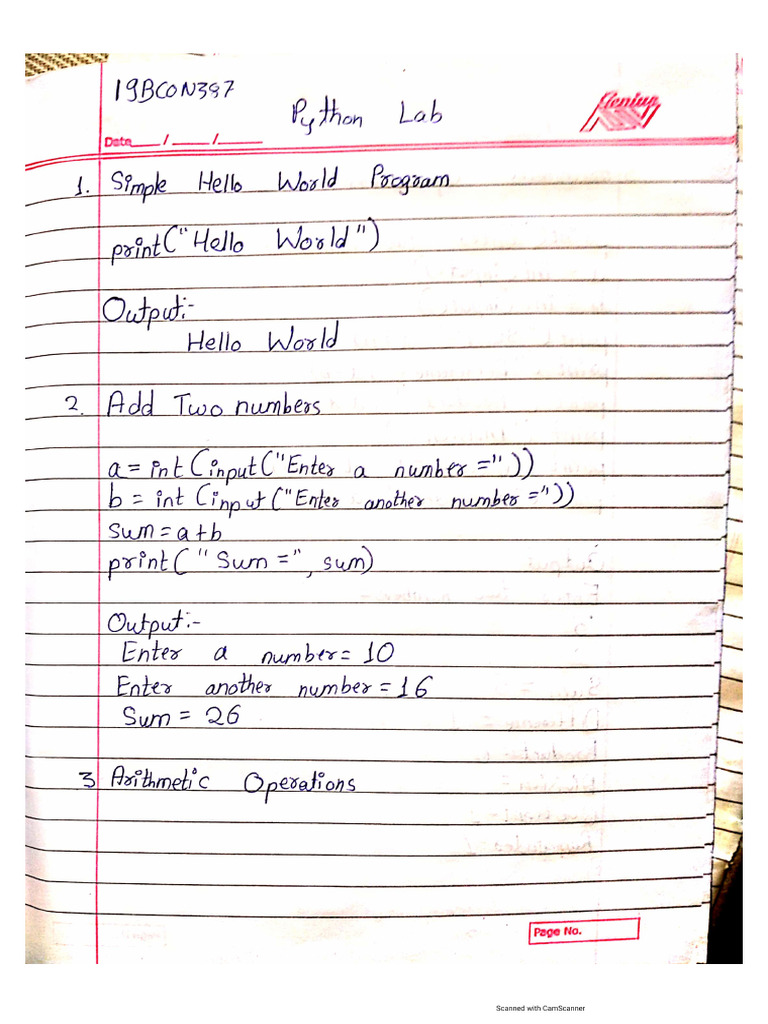 19BCON397
Python Lab
Genius
Date___/___/___
1. Simple Hello World Program
print("Hello World")
Output:-
Hello World
2. Add Two numbers
a = int (input("Enter a number ="))
b = int (input ("Enter another number ="))
sum = a+b
print(" Sum =", sum)
Output:-
Enter a number = 10
Enter another number = 16
Sum = 26
3 Arithmetic Operations
Page No.
Scanned with CamScanner